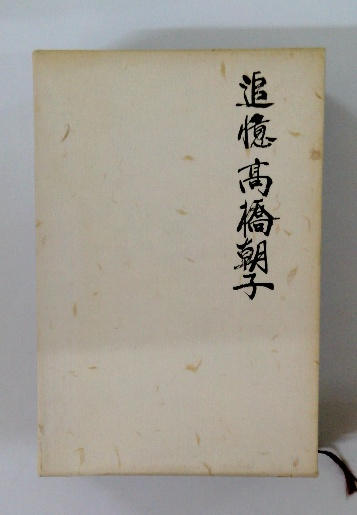 追憶髙橋朝子